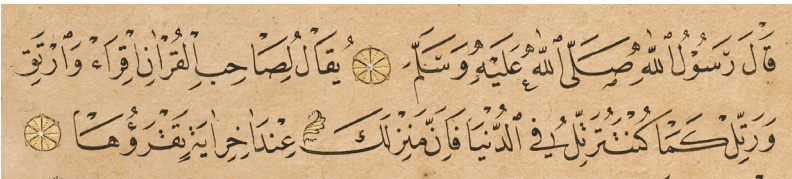 قَالَ رَسُوْلُ اللّٰهِ صَلَّى اللّٰهُ عَلَيْهِ وَسَلَّمَ يُقَالُ لِصَاحِبِ الْقُرْاٰنِ اِقْرَاءْ وَارْتَقِ
وَرَتِّلْ كَمَا كُنْتَ تُرَتِّلُ فِي الدُّنْيَا فَاِنَّ مَنْزِلَكَ عِنْدَ اٰخِرِ اٰيَةٍ تَقْرَؤُهَا